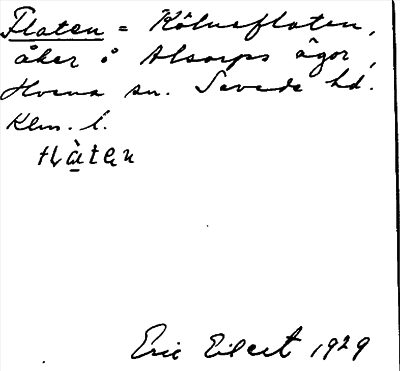 Flaten = Kölneflaten,
åker å Alsarps ägor,
Hvena sn. Sevede hd.
Klm. l.
flàten
Eric Eilert 1929